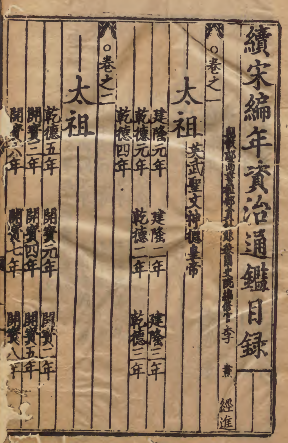 續宋編年資治通鑑目錄
李燾 經進
○卷之一
太祖 英武聖文神德皇帝
建隆元年 建隆二年 建隆三年
乾德元年 乾德二年 乾德三年
乾德四年
○卷之二
太祖
乾德五年 開寶元年 開寶二年
開寶三年 開寶四年 開寶五年
開寶六年 開寶七年 開寶八年